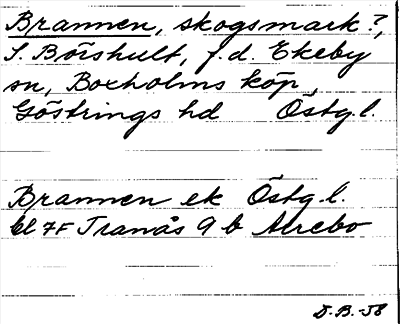 Brannen, skogsmark?,
S. Börshult, f.d. Ekeby
sn, Boxholms köp,
Göstrings hd Östg.l.
Brannen ek Östg.l.
bl 7F Tranås 9 b Alrebo
D.B.-58